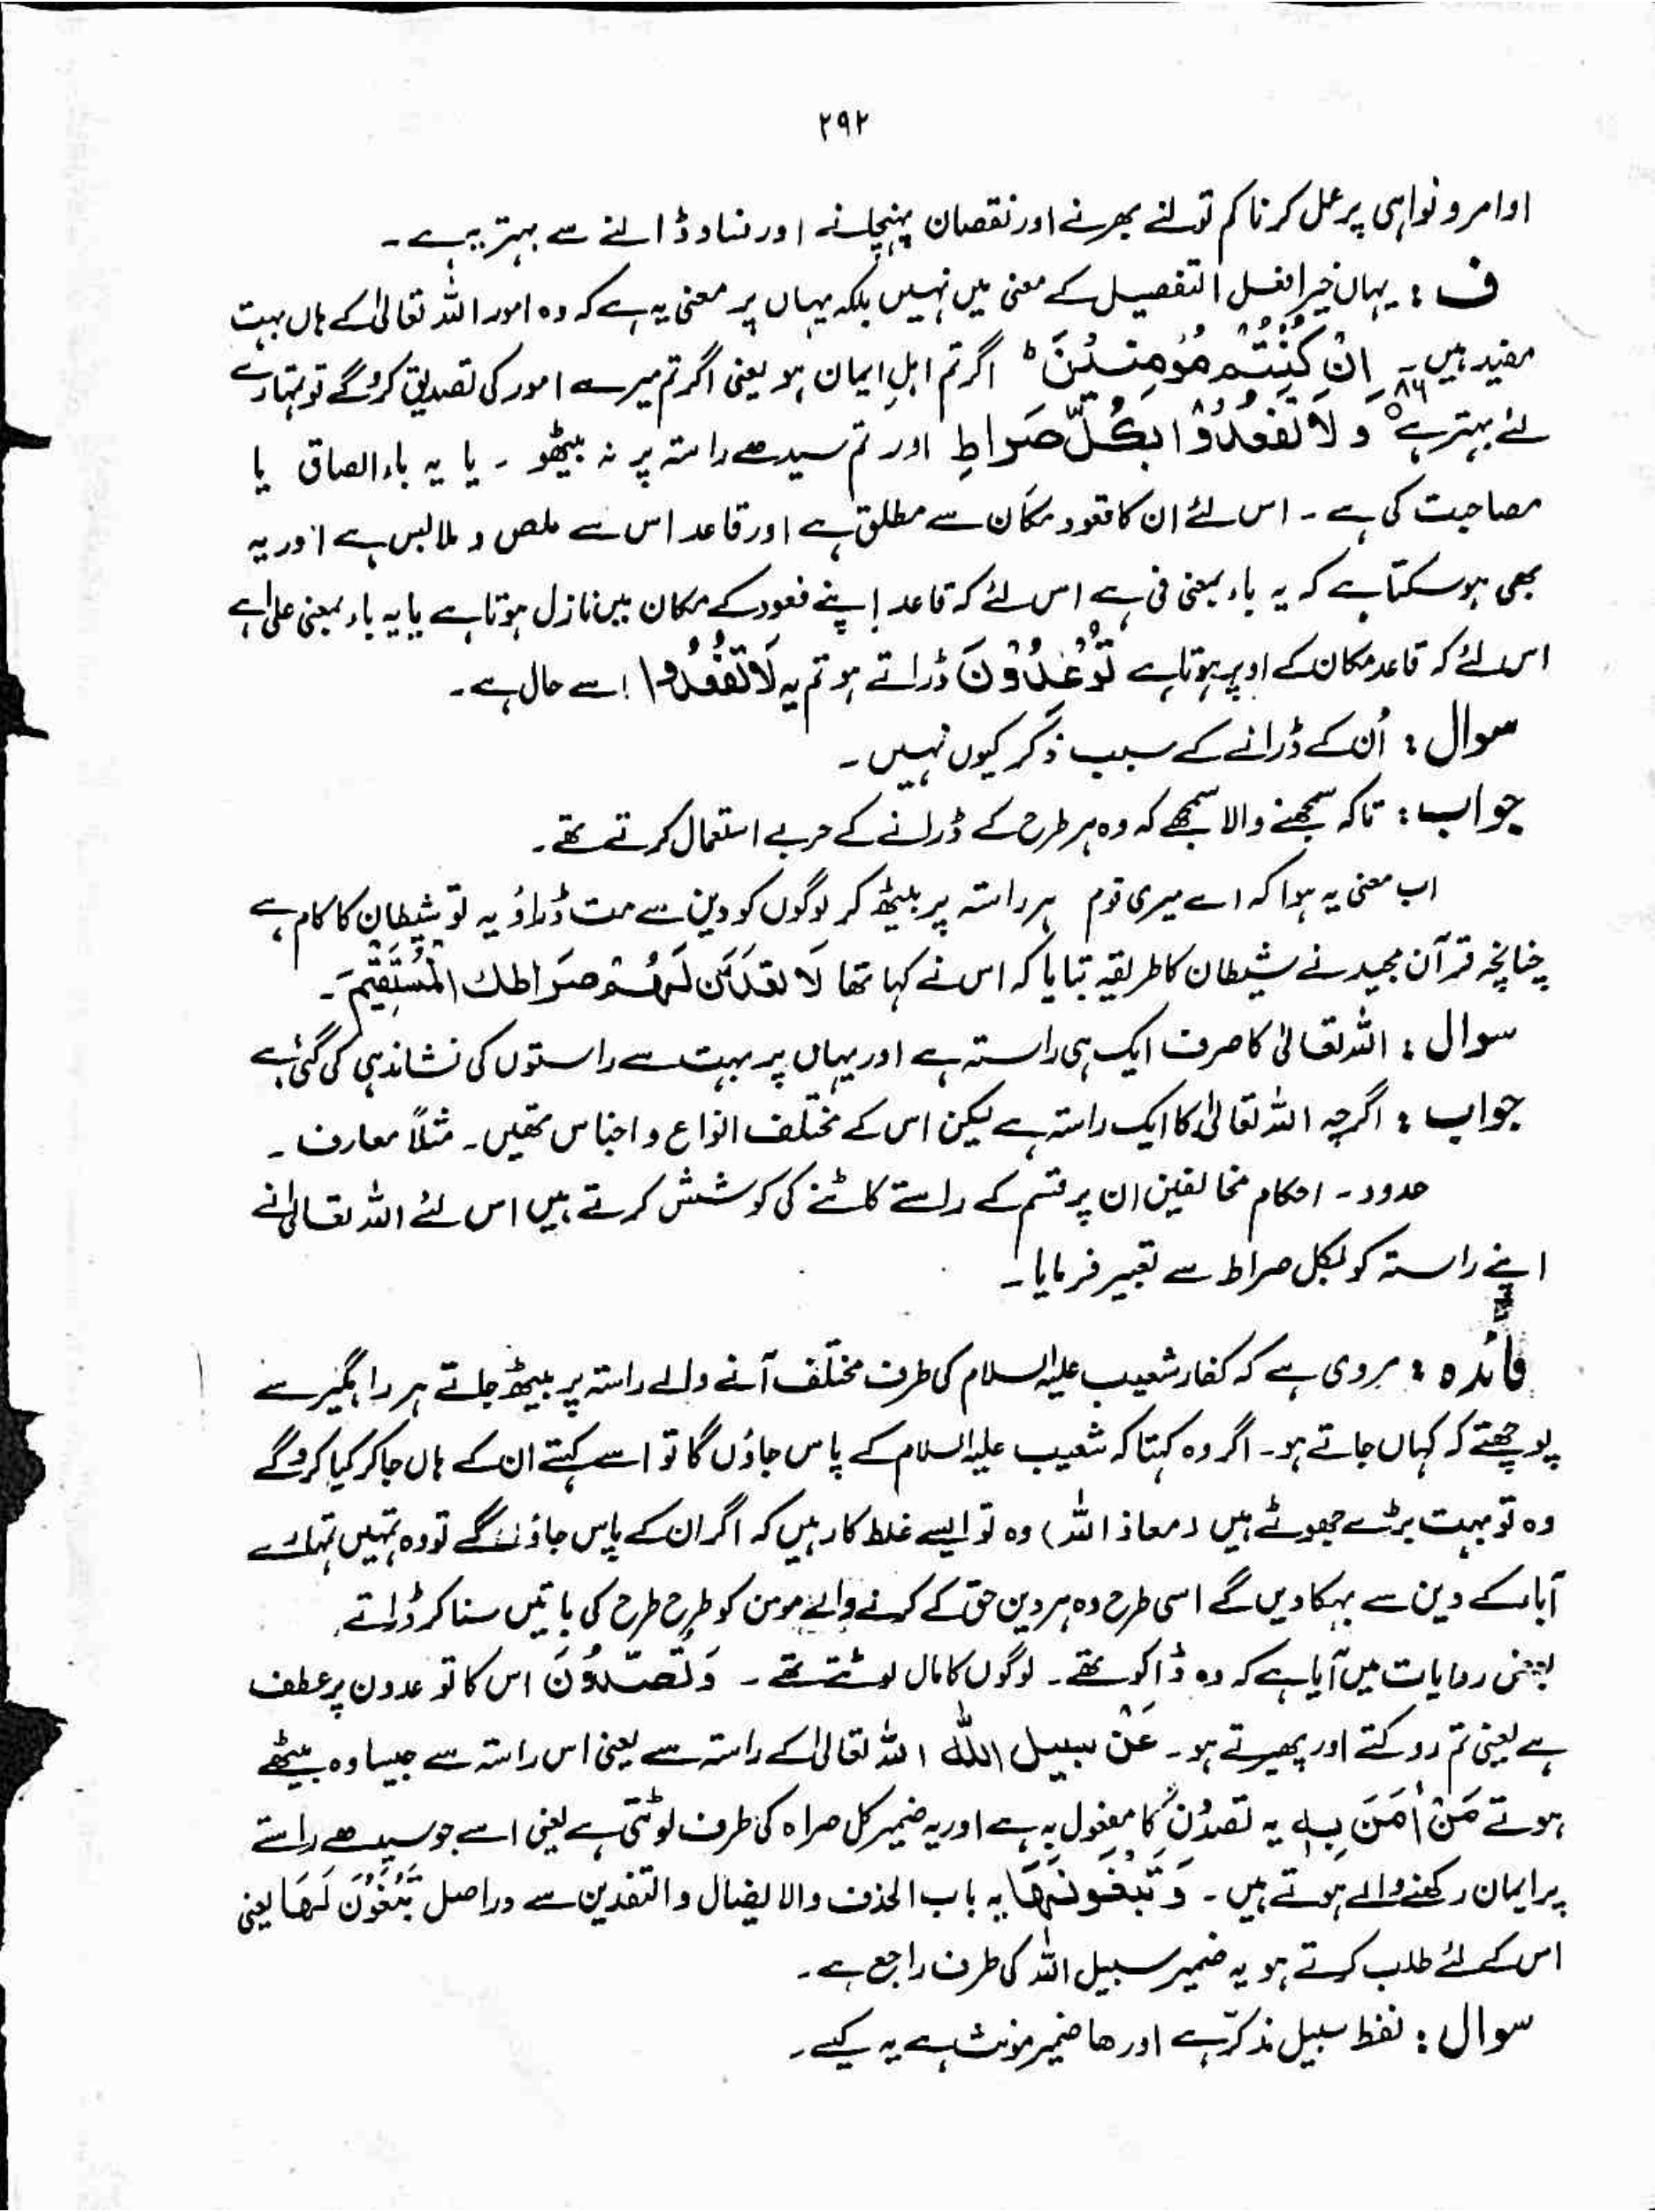 ۲۹۲
اوامر و نواہی پر عمل کرنا کم تولنے بھرنے اور نقصان پہنچانے اور فساد ڈالنے سے بہتر ہے۔
ف : یہاں خیر افعل التفصیل کے معنی میں نہیں بلکہ یہاں پر معنی یہ ہے کہ وہ امور اللہ تعالیٰ کے ہاں بہت
مفید ہیں۔ اِنْ كُنْتُمْ مُؤْمِنِیْنَ ط اگر تم اہلِ ایمان ہو یعنی اگر تم میرے امور کی تصدیق کرو گے تو تمہارے
لئے بہتر ہے ۸۶ وَ لَا تَقْعُدُوْا بِكُلِّ صِرَاطٍ اور تم سیدھے راستہ پر نہ بیٹھو۔ یا یہ باء الصاق یا
مصاحبت کی ہے۔ اس لئے ان کا قعود مکان سے مطلق ہے اور قاعد اس سے ملصق و ملابس ہے اور یہ
بھی ہو سکتا ہے کہ یہ باء بمعنی فی ہے اس لئے کہ قاعد اپنے قعود کے مکان میں نازل ہوتا ہے یا یہ باء بمعنی علیٰ ہے
اس لئے کہ قاعد مکان کے اوپر ہوتا ہے تُوْعِدُوْنَ ڈراتے ہو تم یہ لَا تَقْعُدُوا سے حال ہے۔
سوال : اُن کے ڈرانے کے سبب ذکر کیوں نہیں۔
جواب : تاکہ سمجھنے والا سمجھے کہ وہ ہر طرح کے ڈرانے کے حربے استعمال کرتے تھے۔
اب معنی یہ ہوا کہ اے میری قوم ہر راستہ پر بیٹھ کر لوگوں کو دین سے مت ڈراؤ یہ تو شیطان کا کام ہے
چنانچہ قرآن مجید نے شیطان کا طریقہ بتایا کہ اس نے کہا تھا لَاَقْعُدَنَّ لَهُمْ صِرَاطَكَ الْمُسْتَقِیْمَ۔
سوال : اللہ تعالیٰ کا صرف ایک ہی راستہ ہے اور یہاں پر بہت سے راستوں کی نشاندہی کی گئی ہے
جواب : اگرچہ اللہ تعالیٰ کا ایک راستہ ہے لیکن اس کے مختلف انواع و اجناس تھیں۔ مثلاً معارف۔
حدود۔ احکام مخالفین ان پر قسم کے راستے کاٹنے کی کوشش کرتے ہیں اس لئے اللہ تعالیٰ نے
اپنے راستہ کو بکل صراط سے تعبیر فرمایا۔
فائدہ : مروی ہے کہ کفار شعیب علیہ السلام کی طرف مختلف آنے والے راستہ پر بیٹھ جاتے ہر راہگیر سے
پوچھتے کہ کہاں جاتے ہو۔ اگر وہ کہتا کہ شعیب علیہ السلام کے پاس جاؤں گا تو اسے کہتے ان کے ہاں جا کر کیا کرو گے
وہ تو بہت بڑے جھوٹے ہیں (معاذ اللہ) وہ تو ایسے غلط کار ہیں کہ اگر ان کے پاس جاؤ گے تو وہ تمہیں تمہارے
آباء کے دین سے بہکا دیں گے اسی طرح وہ ہر دین حق کے کرنے والے مومن کو طرح طرح کی باتیں سنا کر ڈراتے
بعض روایات میں آیا ہے کہ وہ ڈاکو تھے۔ لوگوں کا مال لوٹتے تھے۔ وَ تَصُدُّوْنَ اس کا تو عدون پر عطف
ہے یعنی تم روکتے اور پھیرتے ہو۔ عَنْ سبیل اللہ اللہ تعالیٰ کے راستہ سے یعنی اس راستہ سے جیسا وہ بیٹھے
ہوتے مَنْ اٰمَنَ بِهٖ یہ تصدُن کا مفعول بہ ہے اور یہ ضمیر کل صراہ کی طرف لوٹتی ہے یعنی اسے جو سیدھے راستے
پر ایمان رکھنے والے ہوتے ہیں۔ وَ تَبْغُوْنَهَا یہ باب الحذف والا یضال و التقدین سے دراصل تَبْغُوْنَ لَهَا یعنی
اس کے لئے طلب کرتے ہو یہ ضمیر سبیل اللہ کی طرف راجع ہے۔
سوال : لفظ سبیل مذکر ہے اور ھا ضمیر مؤنث ہے یہ کیسے۔